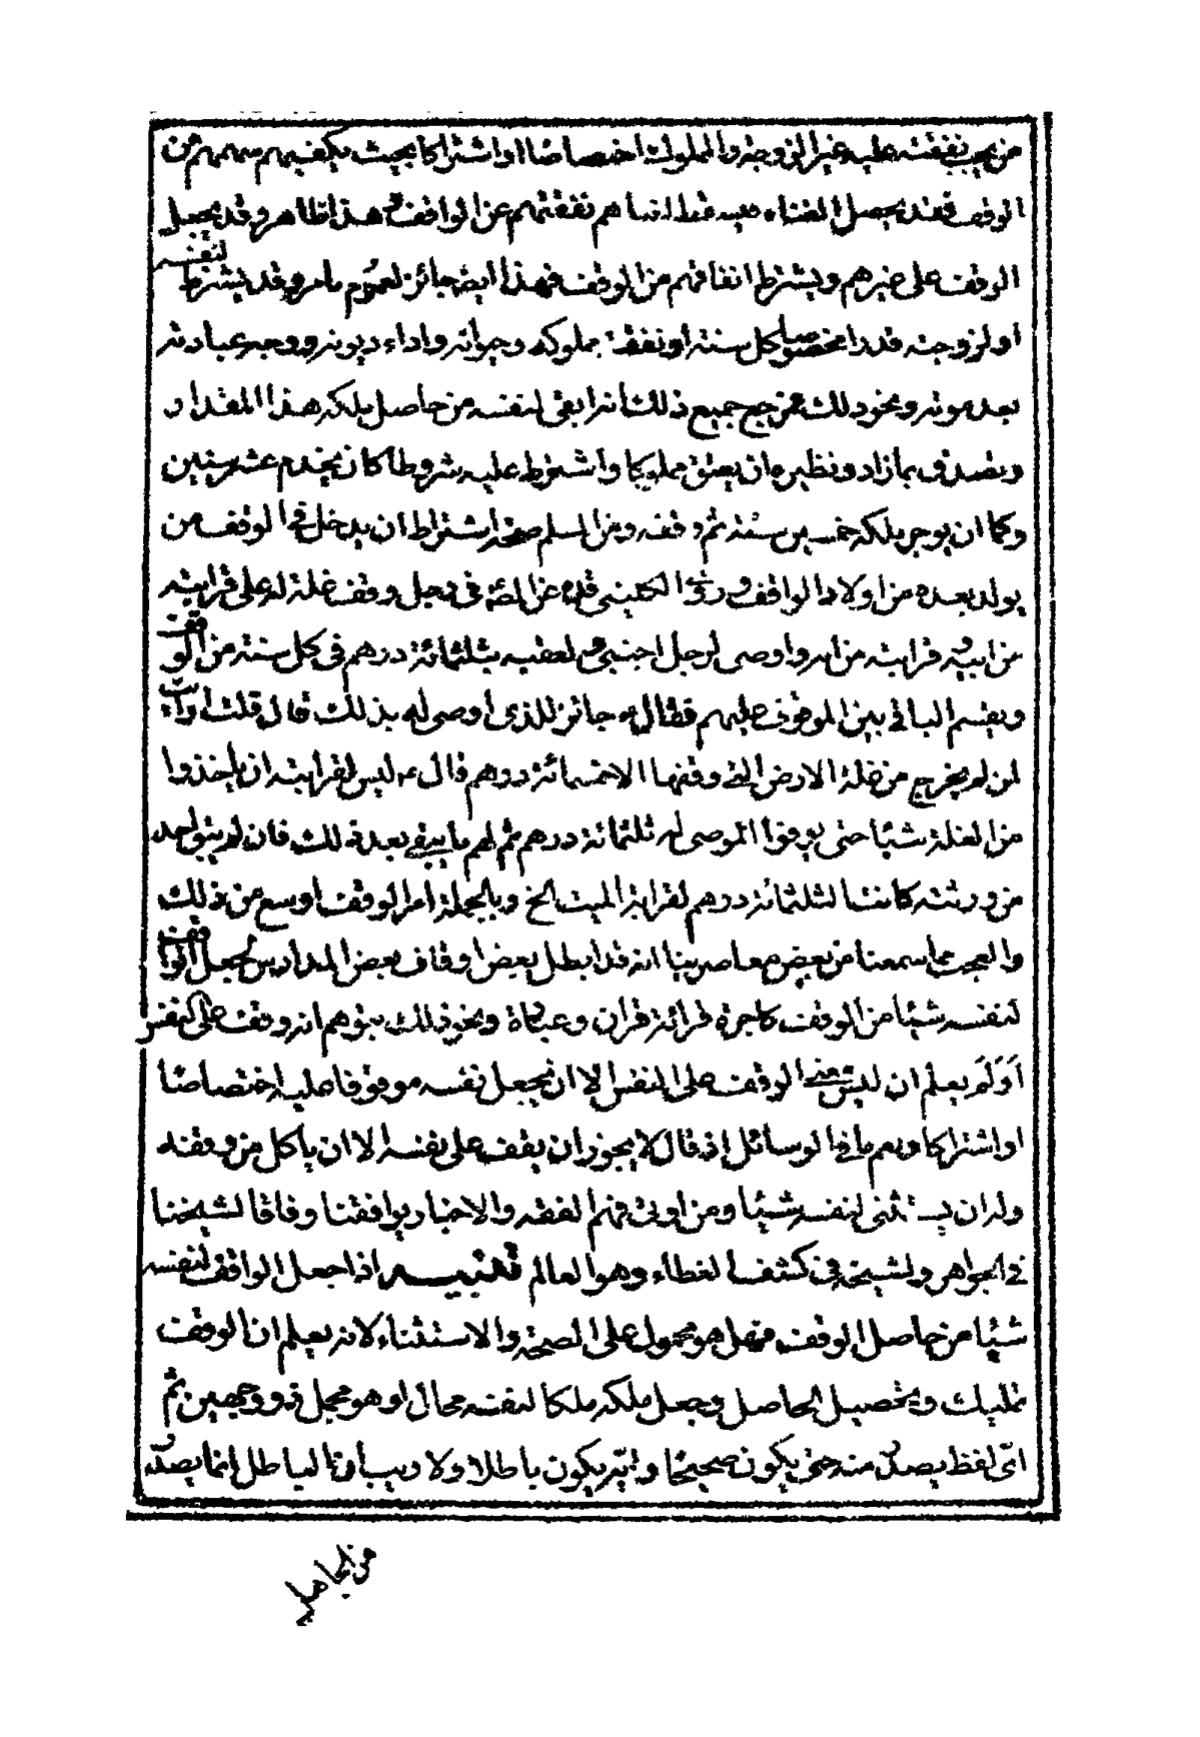 من يجب نفقته عليه غير الزوجة والمملوك اختصاصا او اشتراكا بحيث يكفيهم سهمهم من
الوقف فقد يحصل الغناء فيسقط نفقتهم عن الواقف وهذا ظاهر وقد يجعل
الوقف على غيرهم ويشترط انفاقهم من الوقف فهذا ايضا جائز لعموم ما مر وقد يشترط لنفسه
او لزوجته قدرا مخصوصا كل سنة او نفقة مملوكه وحيوانه واداء ديونه ووجه عباداته
بعد موته ونحو ذلك فمرجع جميع ذلك انه ابقى لنفسه من حاصل ملكه هذا المقدار
وتصدق بما زاد ونظيره ان يعتق مملوكا واشترط عليه شروطا كان يخدم عشر سنين
وكما ان يوجر ملكه خمسين سنة ثم وقفه ومن المسلم صحة اشتراط ان يدخل في الوقف من
يولد بعده من اولاد الواقف وروى الكليني في رجل وقف غلة له على قرابته
من ابيه وقرابته من امه واوصى لرجل اجنبي ولعقبه بثلثمائة درهم في كل سنة من الوقف
ويقسم الباقي بين الموقوف عليهم فقال ع جائز للذي اوصى له بذلك قال قلت ارايت
ان لم يخرج من غلة الارض التي وقفها الا خمسمائة درهم قال ع ليس لقرابته ان ياخذوا
من الغلة شيئا حتى يوفوا الموصى له ثلثمائة درهم ثم لهم ما يبقى بعد ذلك فان لم يبق احد
من ورثته كانت الثلثمائة درهم لقرابة الميت الخ وبالجملة امر الوقف اوسع من ذلك
والعجب مما سمعنا من بعض معاصرينا انه قد ابطل بعض اوقاف بعض المدارس لجعل الواقف
لنفسه شيئا من الوقف كاجرة قرائة قران وعبادة ونحو ذلك بتوهم انه وقف على النفس
اَوَلَم يعلم ان ليس معنى الوقف على النفس الا ان يجعل نفسه موقوفا عليه اختصاصا
او اشتراكا ونعم ما في الوسائل إذ قال لا يجوز ان يقف على نفسه الا ان ياكل من وقفه
وله ان يستثنى لنفسه شيئا ومن اوتي فهم الفقه والاخبار يوافقنا وفاقا لشيخنا
في الجواهر ولشيخه في كشف الغطاء وهو العالم تنبيه اذا جعل الواقف لنفسه
شيئا من حاصل الوقف فهل هو محمول على الصحة والاستثناء لانه يعلم ان الوقف
تمليك وتحصيل الحاصل وجعل ملكه ملكا لنفسه محال او هو مجمل ذو وجهين ثم
اتى لفظ يصدر منه حتى يكون صحيحا وايه يكون باطلا ولا ريب ان الباطل انما يصدر
من الجاهل